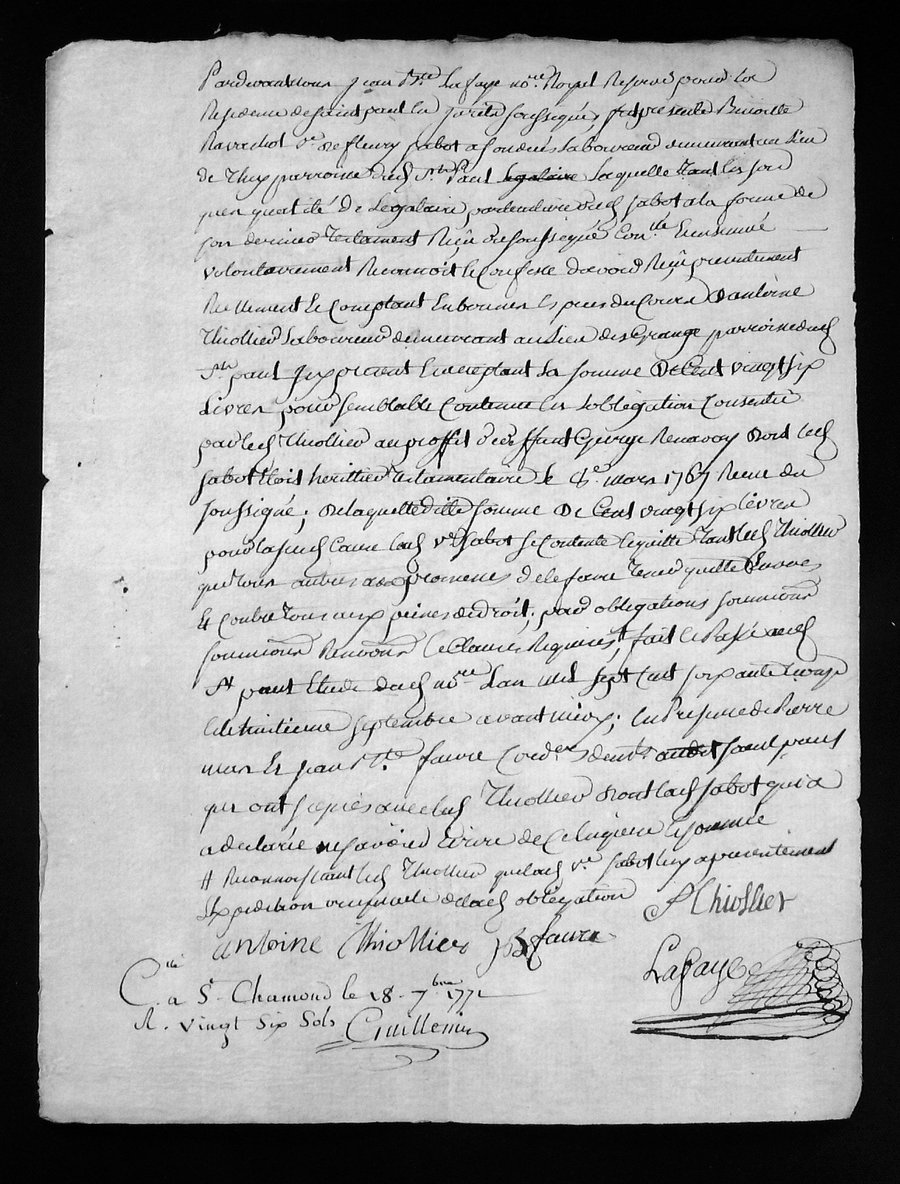 Pardevant nous Jean B.te Lafaye no.re Royal Reservé pour la
Residence de saint paul en Jarêts soussigné, fut presente Benoitte
Ravachol v.e de fleury sabot a son deces laboureur demeurant au lieu
de Thuy parroisse dud St paul legataire Laquelle tant en son
qu'en qualité de Legataire particuliere dud sabot a la forme de
son dernier Testament Reçu du soussigné Con.llé Ensinué
volontairement Reconnoit & Confesse d'avoir Reçu presentement
Reellement & Comptant En bonnes Especes du Cours D'antoine
Thiollier Laboureur demeurant au Lieu des Grange parroisse dud
St paul present acceptant La somme De Cent vingt six
Livres pour semblable Contenue en L'obligation Consentie
par led Thiollier au proffit d'Georges Renavoy dont led
sabot Etoit herittier Testamentaire le 8.e mars 1767 Reçue du
soussigné; De laquelle ditte somme De Cent vingt six Livres
pour la susd Cause lad v.e sabot se Contente & quitte Tant led Thiollier
que tous autres avec promesses d'en faire Tenir quitte Envers
& Contre Tous aux peines de droit; par obligations soumissions
soumissions Renons & Clauses Requises, fait & Passé aud
St paul Etude dud no.re L'an mil sept Cent soixante & onze
Le huitieme septembre avant midy; En Presence de Pierre
& Jean B.te faure Cord.er dem.ts audit saint paul
qui ont signés avec led Thiollier Non lad sabot qui a
a declarée ne savoir Ecrire de Ce Enquise & sommée
# Reconnoissant led Thiollier que lad v.e sabot luy a presentement
Expedition originale de lad obligation
P Thiollier
antoine Thiollier JB faure
Lafaye
C.llé a St Chamond le 18 7.bre 1771
R. vingt six sols Guillemin